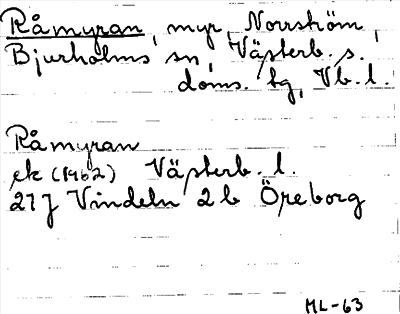 Råmyran, myr, Norrström,
Bjurholms sn, Västerb. s.
doms. hg, Vb. l.
Råmyran
ek (1962) Västerb. l.
21J Vindeln 2b Öreborg
ML-63